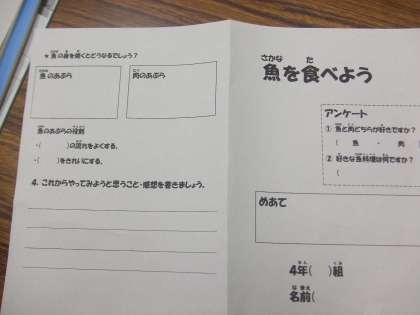 ★魚の身を焼くとどうなるでしょう？
魚のあぶら
肉のあぶら
魚のあぶらの役割
・（　　　）の流れをよくする。
・（　　）をきれいにする。
4. これからやってみようと思うこと・感想を書きましょう。
さかな　た
魚を食べよう
アンケート
① 魚と肉どちらが好きですか？
（　魚　・　肉
② 好きな魚料理は何ですか？
（
めあて
4年（　）組
名前（